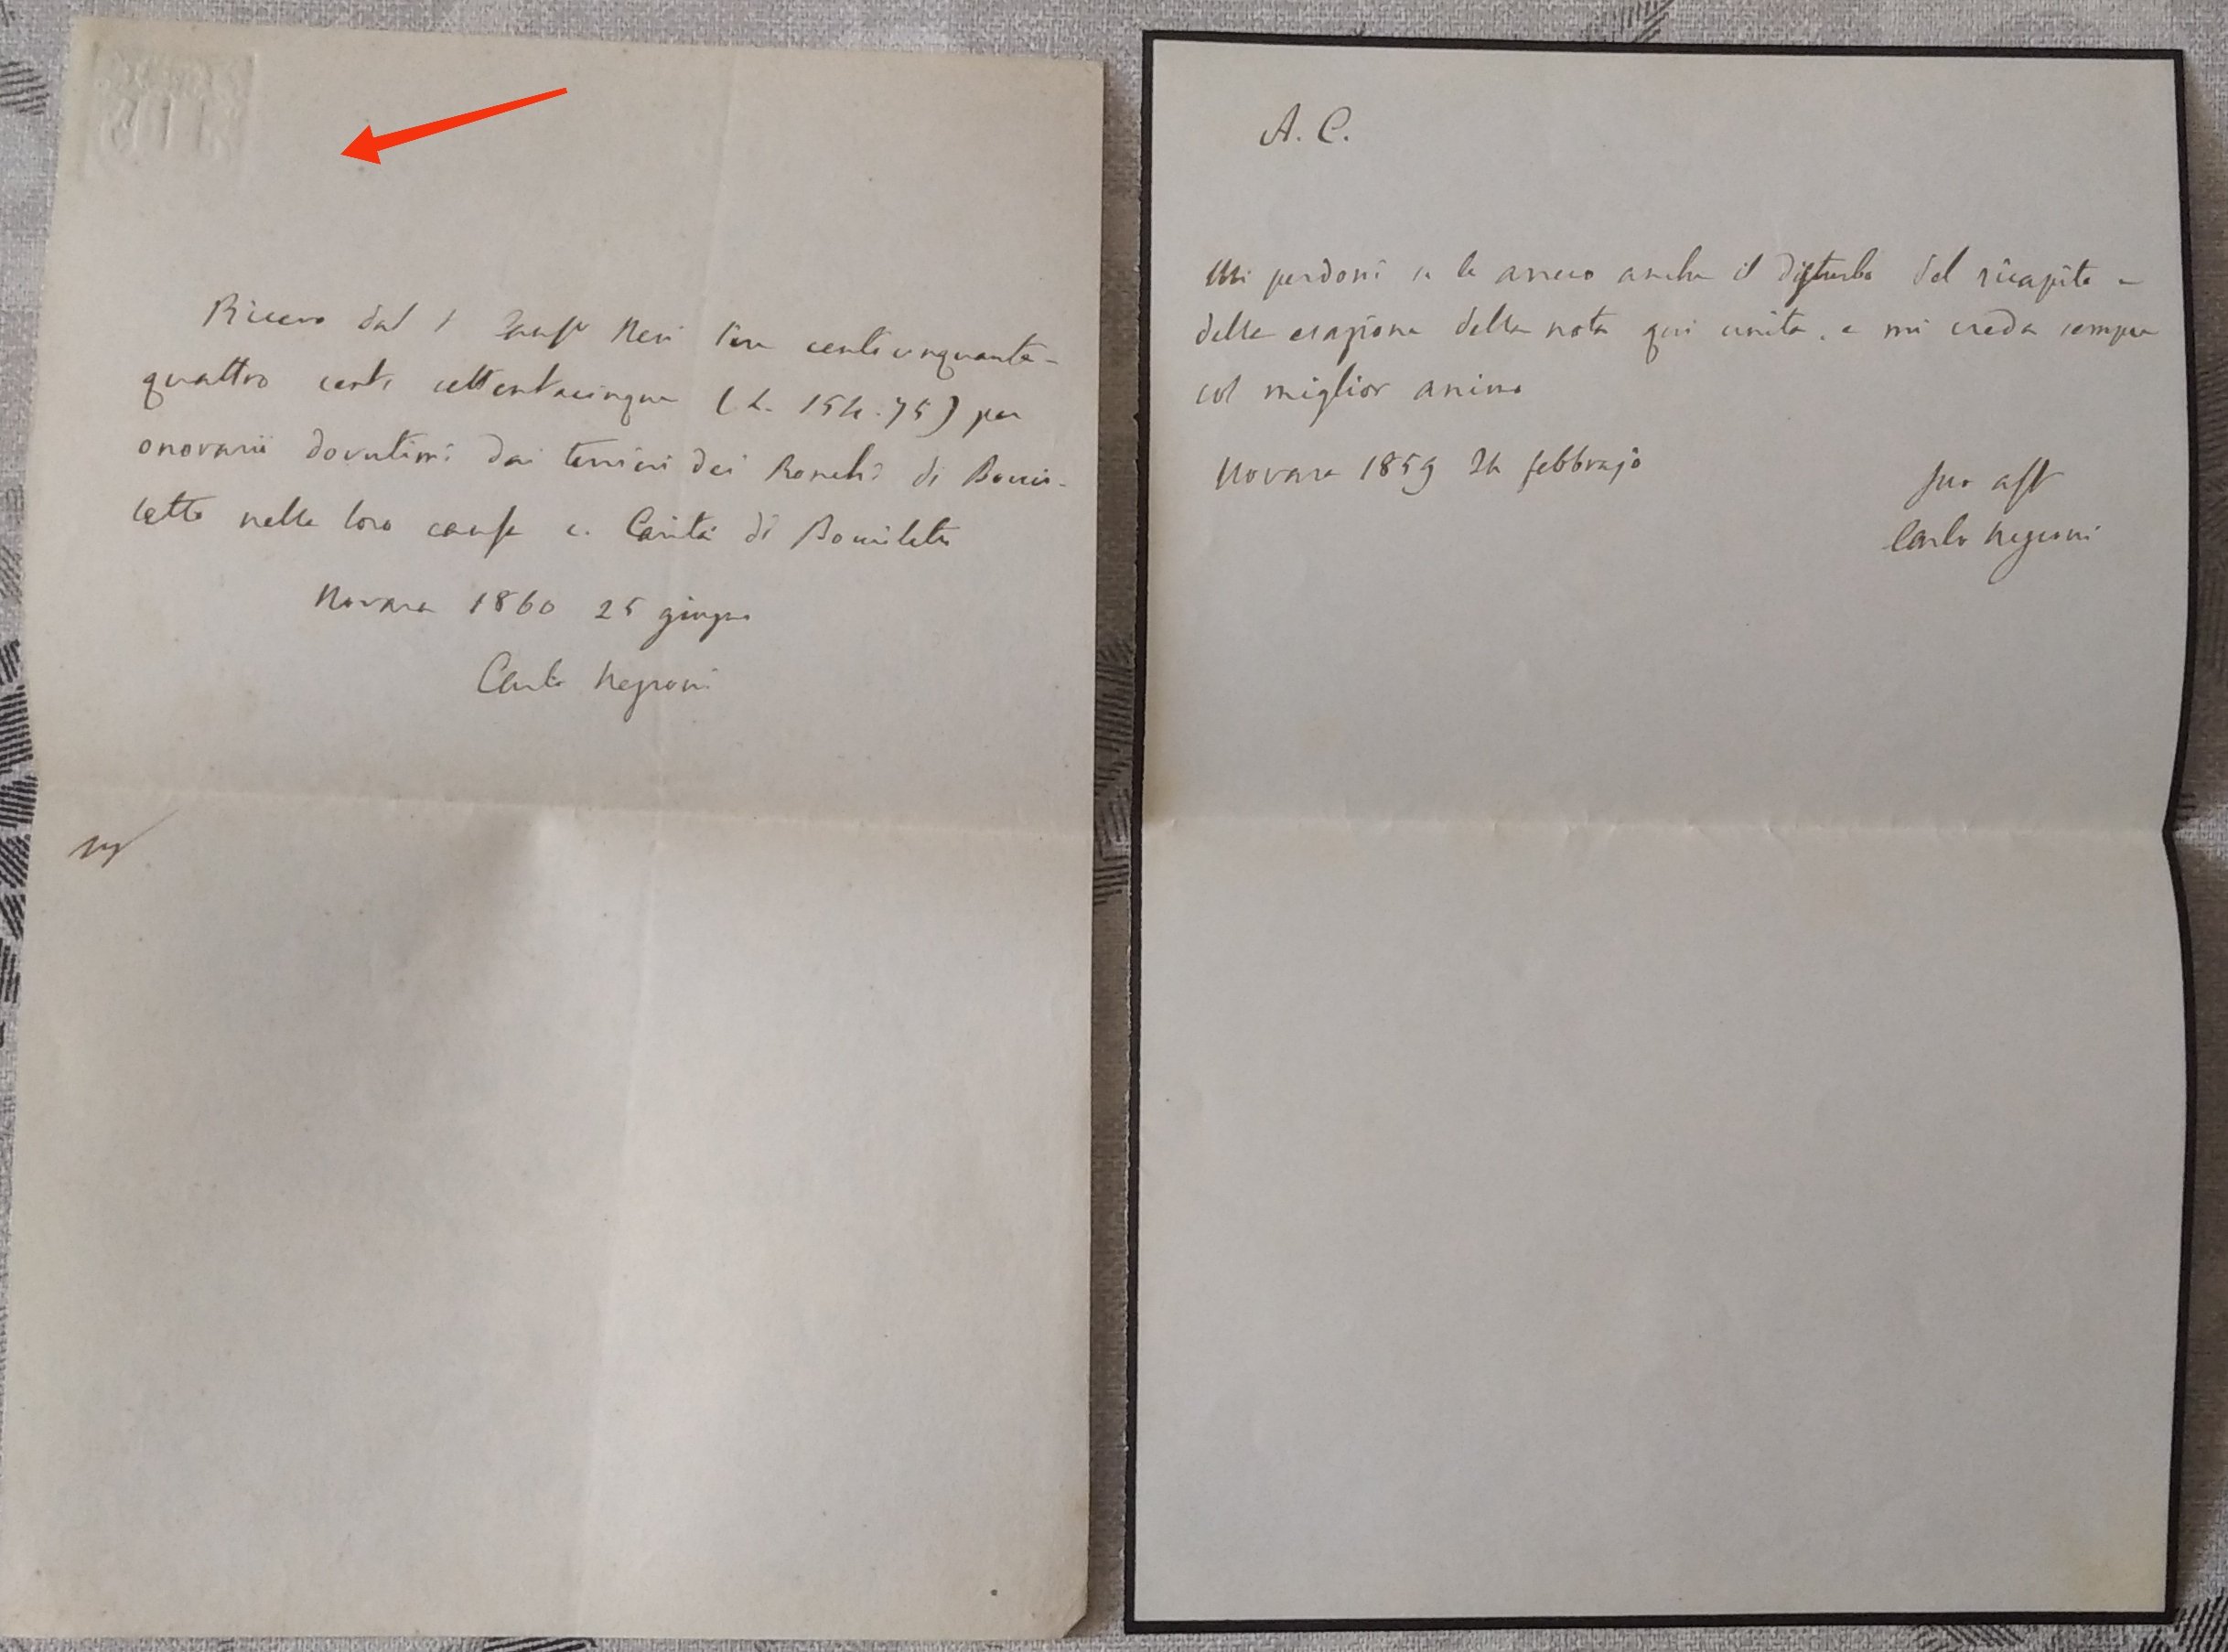 Ricevo dal Neri lire centocinquanta-
quattro cent. settantacinque (L. 154.75) per
onorarii dovutimi dai terrieri dei Ronchi di
nella loro causa c. Carità di
Novara 1860 25 giugno
Carlo Negroni
A. C.
Mi perdoni se le arreco anche il disturbo del ricapito e
della esazione della nota qui unita, e mi creda sempre
col miglior animo
Novara 1859 24 febbrajo
Suo aff
Carlo Negroni